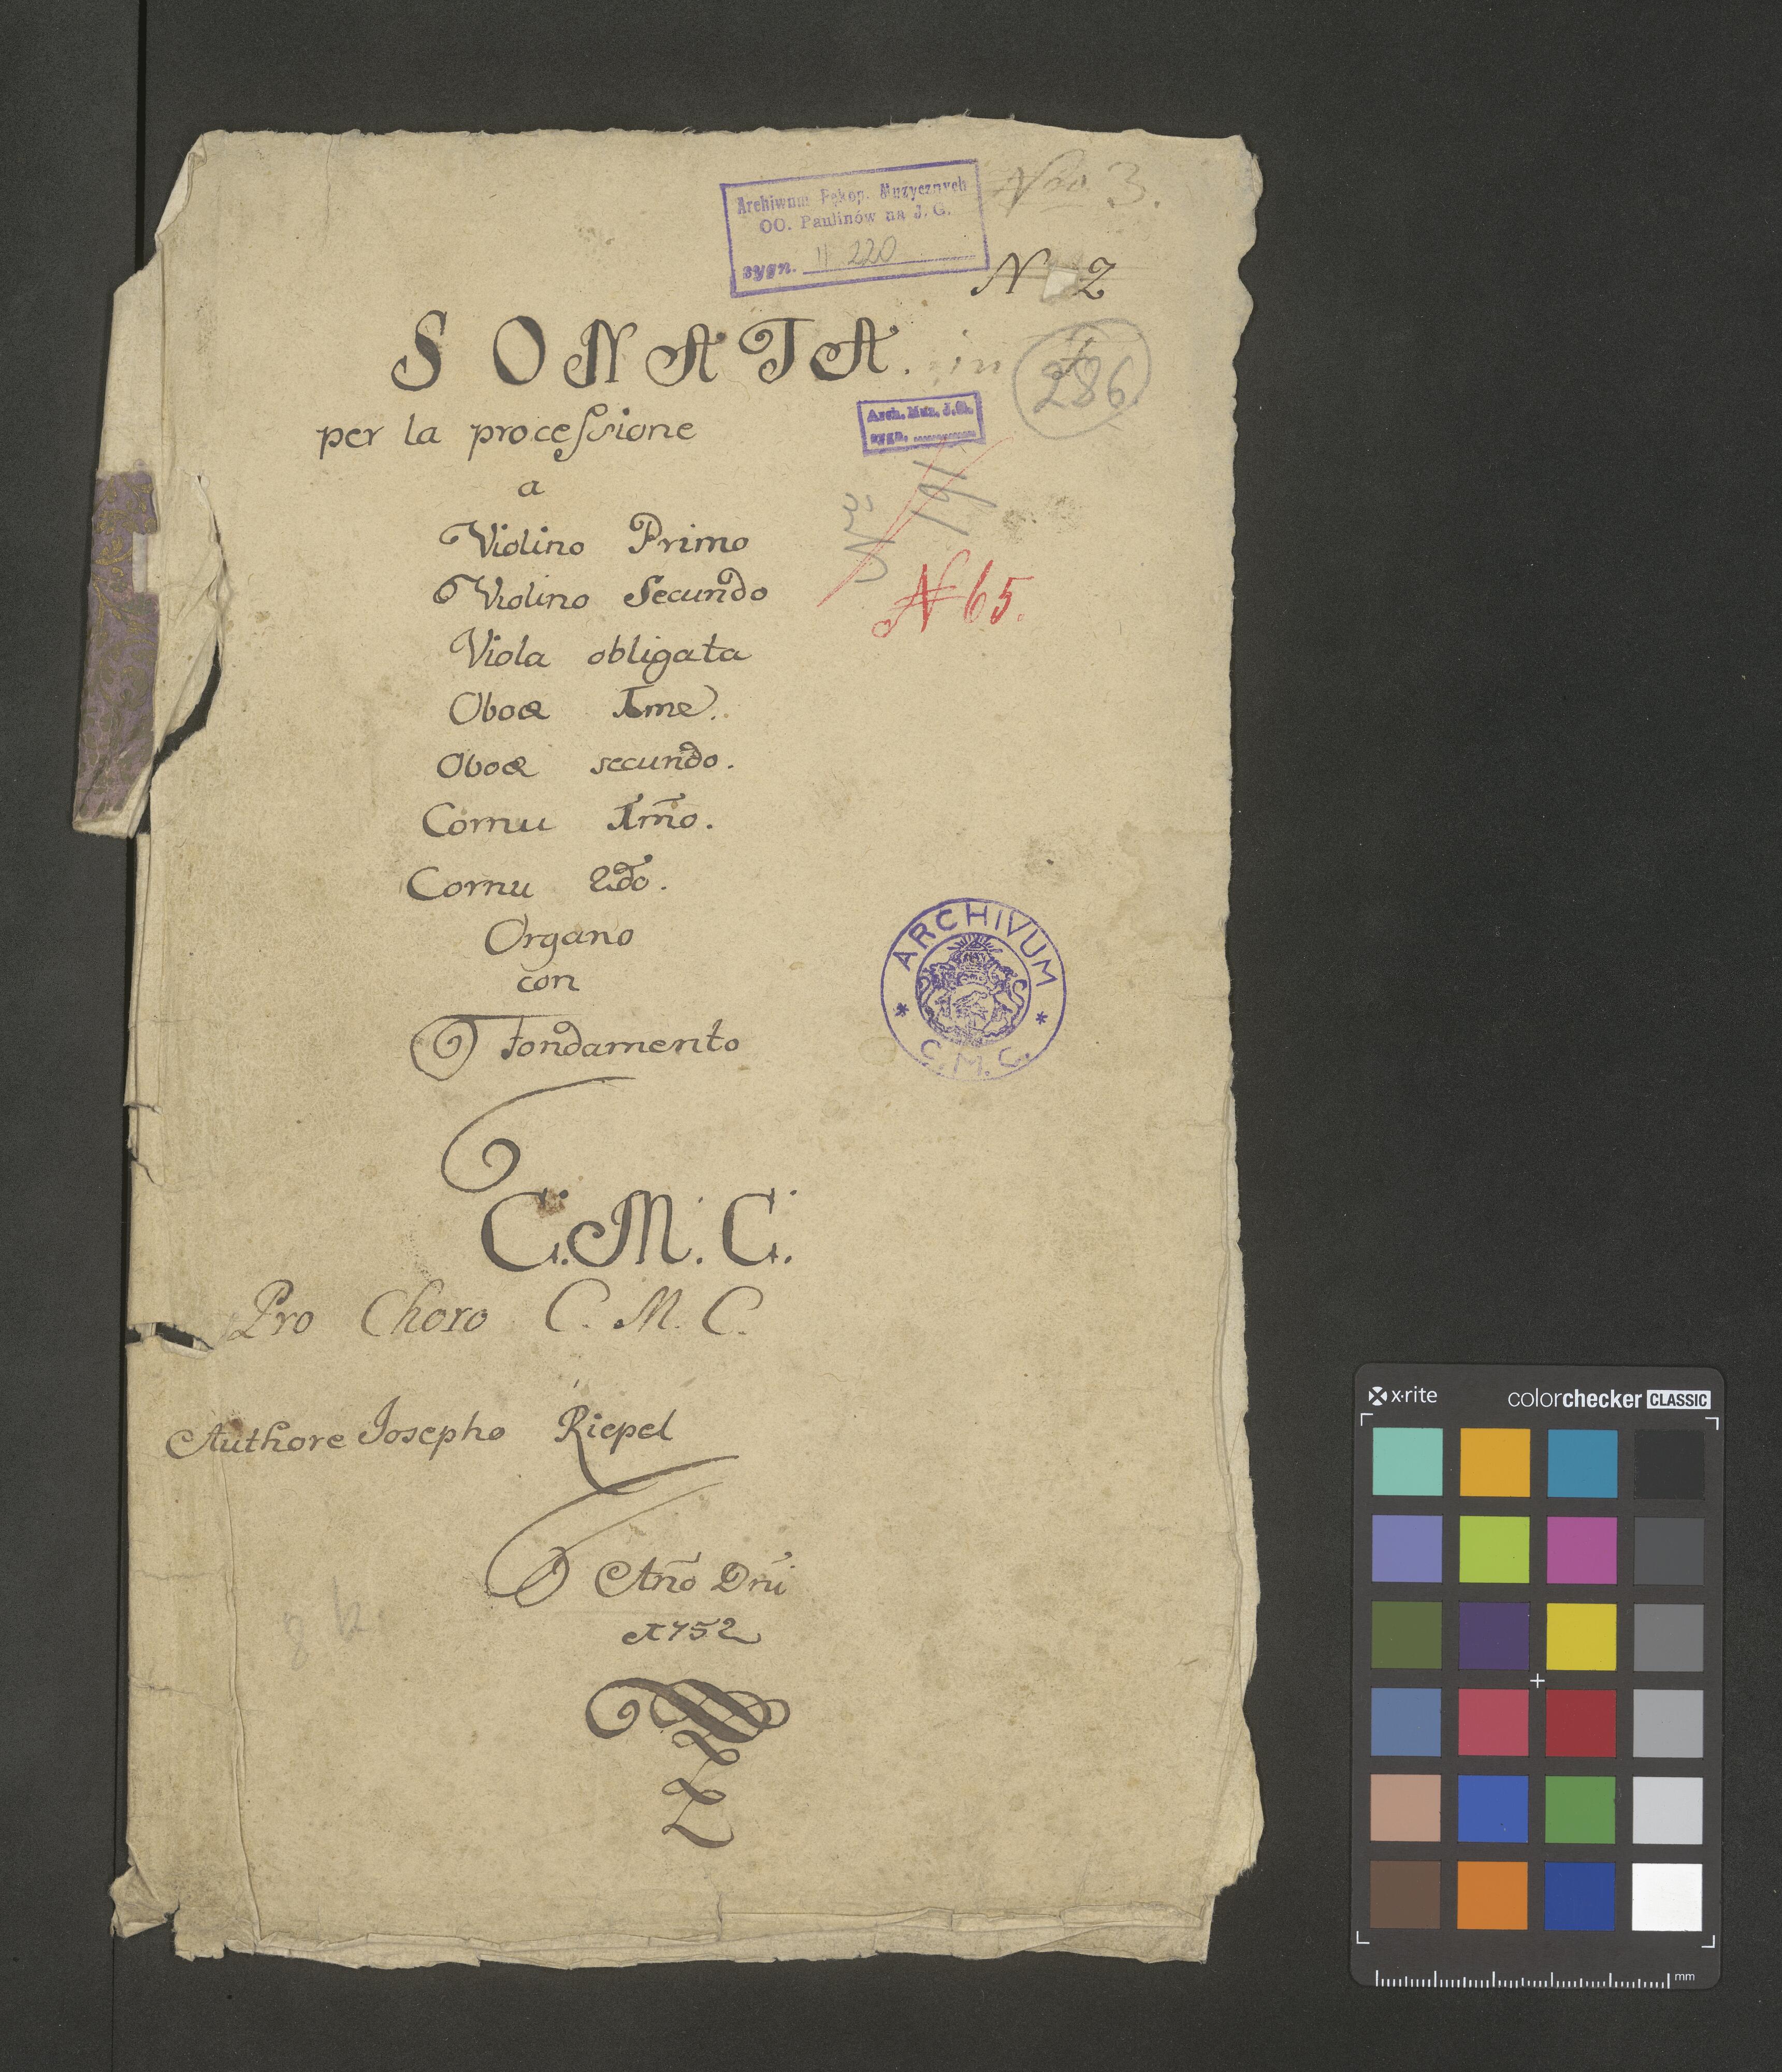 Nro. 3.
Archiwum Rękop. Muzycznych
OO. Paulinów na J. G.
sygn. II 220
N 2
SONATA. in F
286
per la processione
Arch. Muz. J. G.
sygn.
a
Nr 191
Violino Primo
N 65.
Violino Secundo
Viola obligata
Oboæ Ime.
Oboæ secundo.
Cornu Im̃o.
Cornu 2do.
Organo
con
Fondamento
ARCHIVUM
* C. M. C. *
C. M. C.
Pro Choro C. M. C.
Authore Iosepho Riepel
Añо Dñi
1752
x-rite
colorchecker CLASSIC
mm